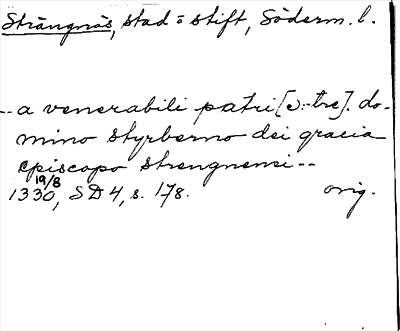 Strängnäs, stad o stift, Söderm. l.
-- a venerabili patri [ɔ: -tre]. do-
mino styrberno dei gracia
episcopo strengnensi --
19/8
1330, SD 4, s. 178. orig.